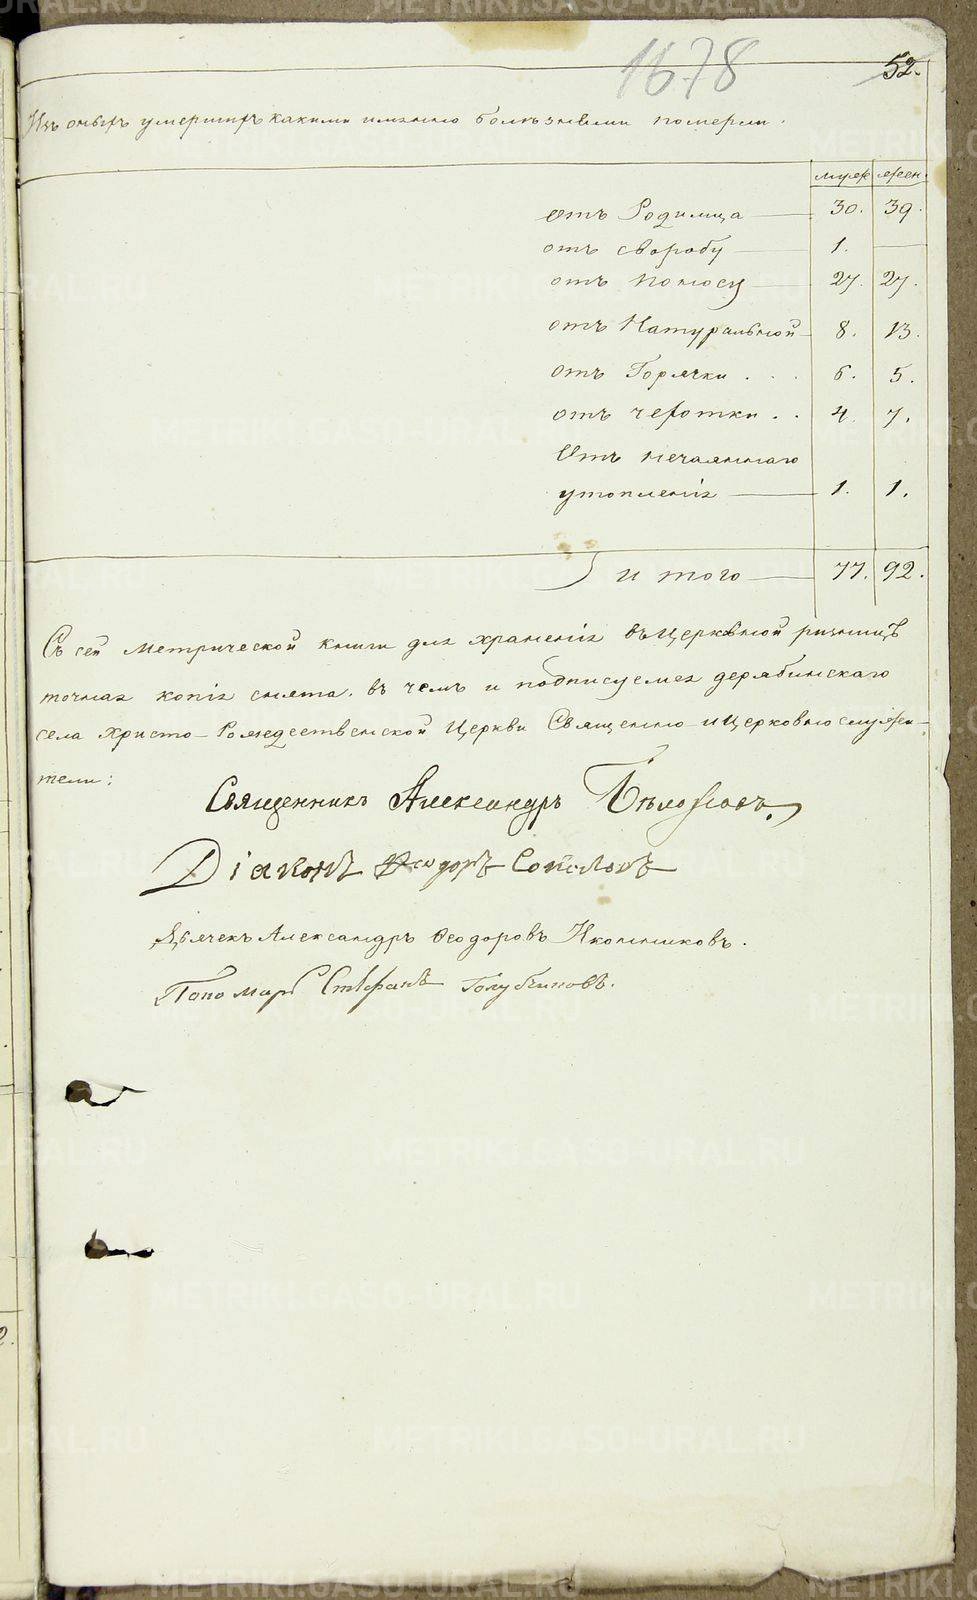 1678
52.
Изъ оныхъ умершихъ какими именно болѣзнями померли.
муж жен.
отъ Родимца 30. 39.
отъ своробу 1.
отъ поносу 27. 27.
отъ Натуральной 8. 13.
отъ Горячки . . . 6. 5.
отъ чехотки . . 4. 7.
Отъ нечаяннаго
утопленія 1. 1.
итого 77. 92.
Съ сей Метрической книги для храненія въ церковной ризницѣ
точная копія снята. въ чемъ и подписуемся дерябинскаго
села Христо-Рождественской Церкви Священно-и церковнослужи-
тели:
Священникъ Александръ
Діаконъ Ѳеодоръ Соколовъ
Дьячекъ Александръ Ѳеодоровъ Иконниковъ.
Пономарь Стефанъ Голубчиковъ.
METRIKI.GASO-URAL.RU